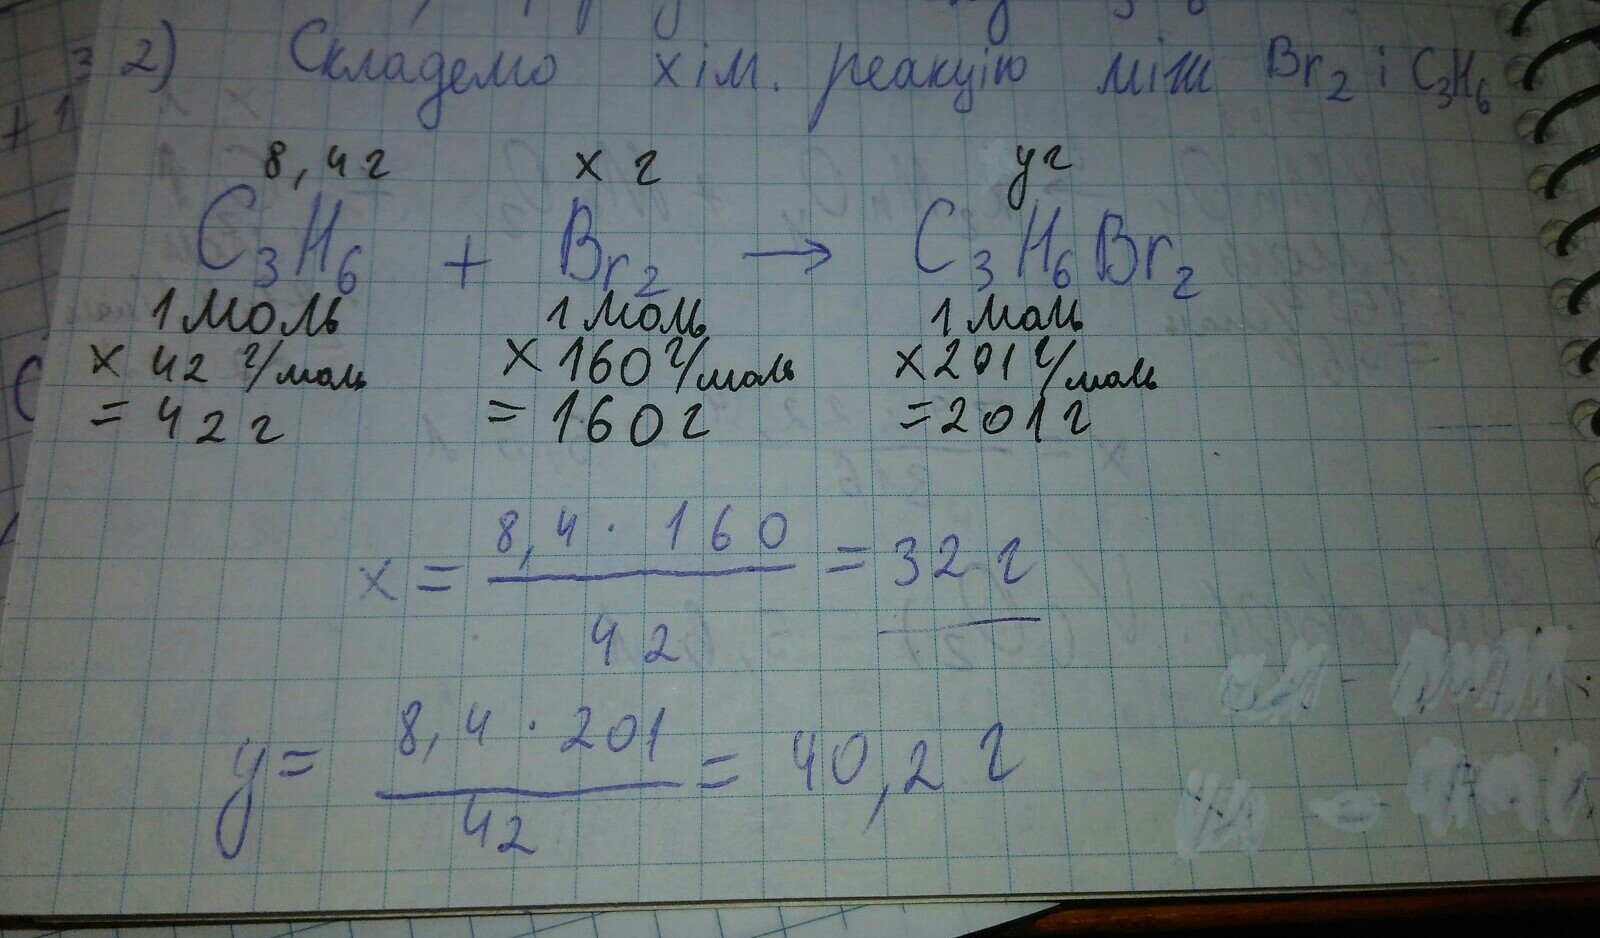 2) Складемо хім. реакцію між Br2 і C3H6
8,4 г x г y г
C3H6 + Br2 → C3H6Br2
1 моль 1 моль 1 моль
x 42 г/моль x 160 г/моль x 201 г/моль
= 42 г = 160 г = 201 г
x = 8,4 · 160 / 42 = 32 г
y = 8,4 · 201 / 42 = 40,2 г